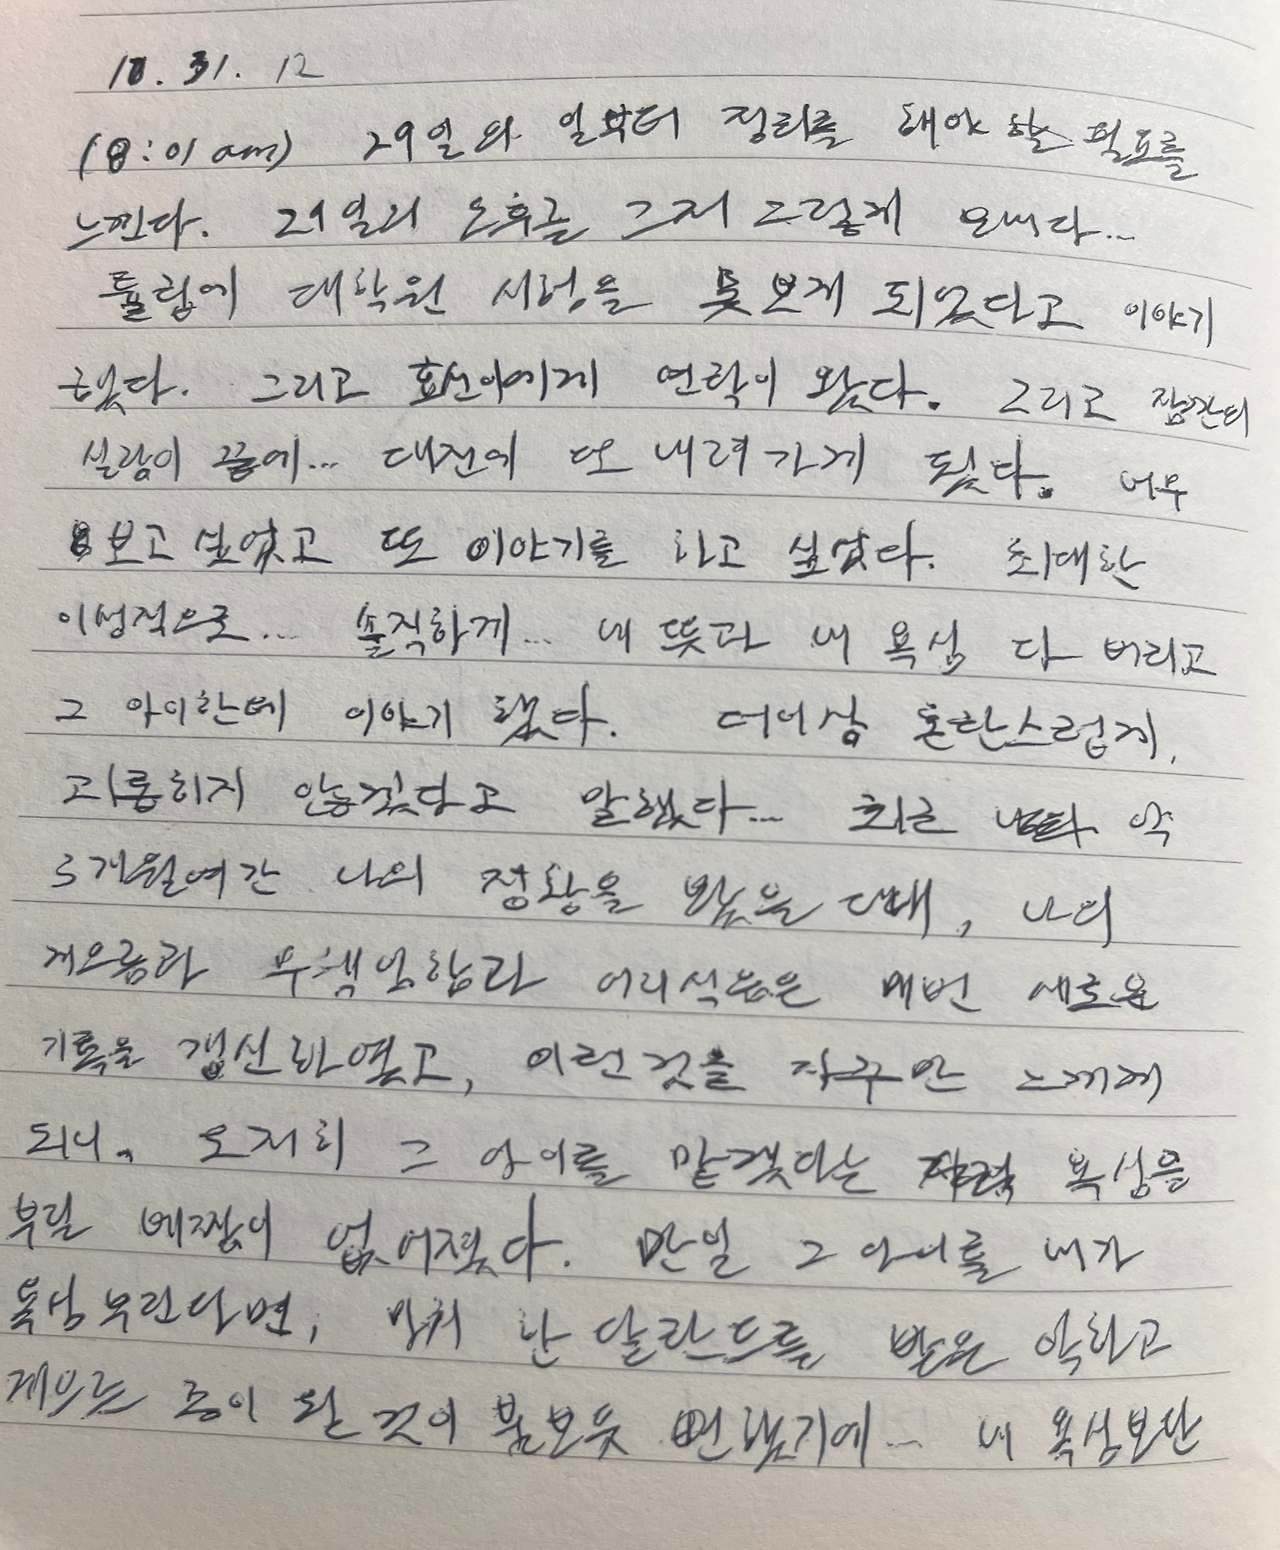 10. 31. 12
(8:01 am) 29일의 일부터 정리를 해야 할 필요를
느낀다. 29일의 오후는 그저 그렇게 보냈다...
튤립에 대학원 시험을 못보게 되었다고 이야기
했다. 그리고 효선이에게 연락이 왔다. 그리고 잠깐의
실랑이 끝에... 대전에 또 내려가게 됬다. 너무
보고싶었고 또 이야기를 하고 싶었다. 최대한
이성적으로... 솔직하게... 내 뜻과 내 욕심 다 버리고
그 아이한테 이야기 했다. 더이상 혼란스럽게,
괴롭히지 않겠다고 말했다... 최근 약
3개월여간 나의 정황을 봤을 때, 나의
게으름과 무책임함과 어리석음은 매번 새로운
기록을 갱신하였고, 이런것을 자꾸만 느끼게
되니, 도저히 그 아이를 맡겠다는 욕심을
부릴 배짱이 없어졌다. 만일 그 아이를 내가
욕심부린다면, 마치 한 달란트를 받은 악하고
게으른 종이 될 것이 불보듯 뻔했기에... 내 욕심보단